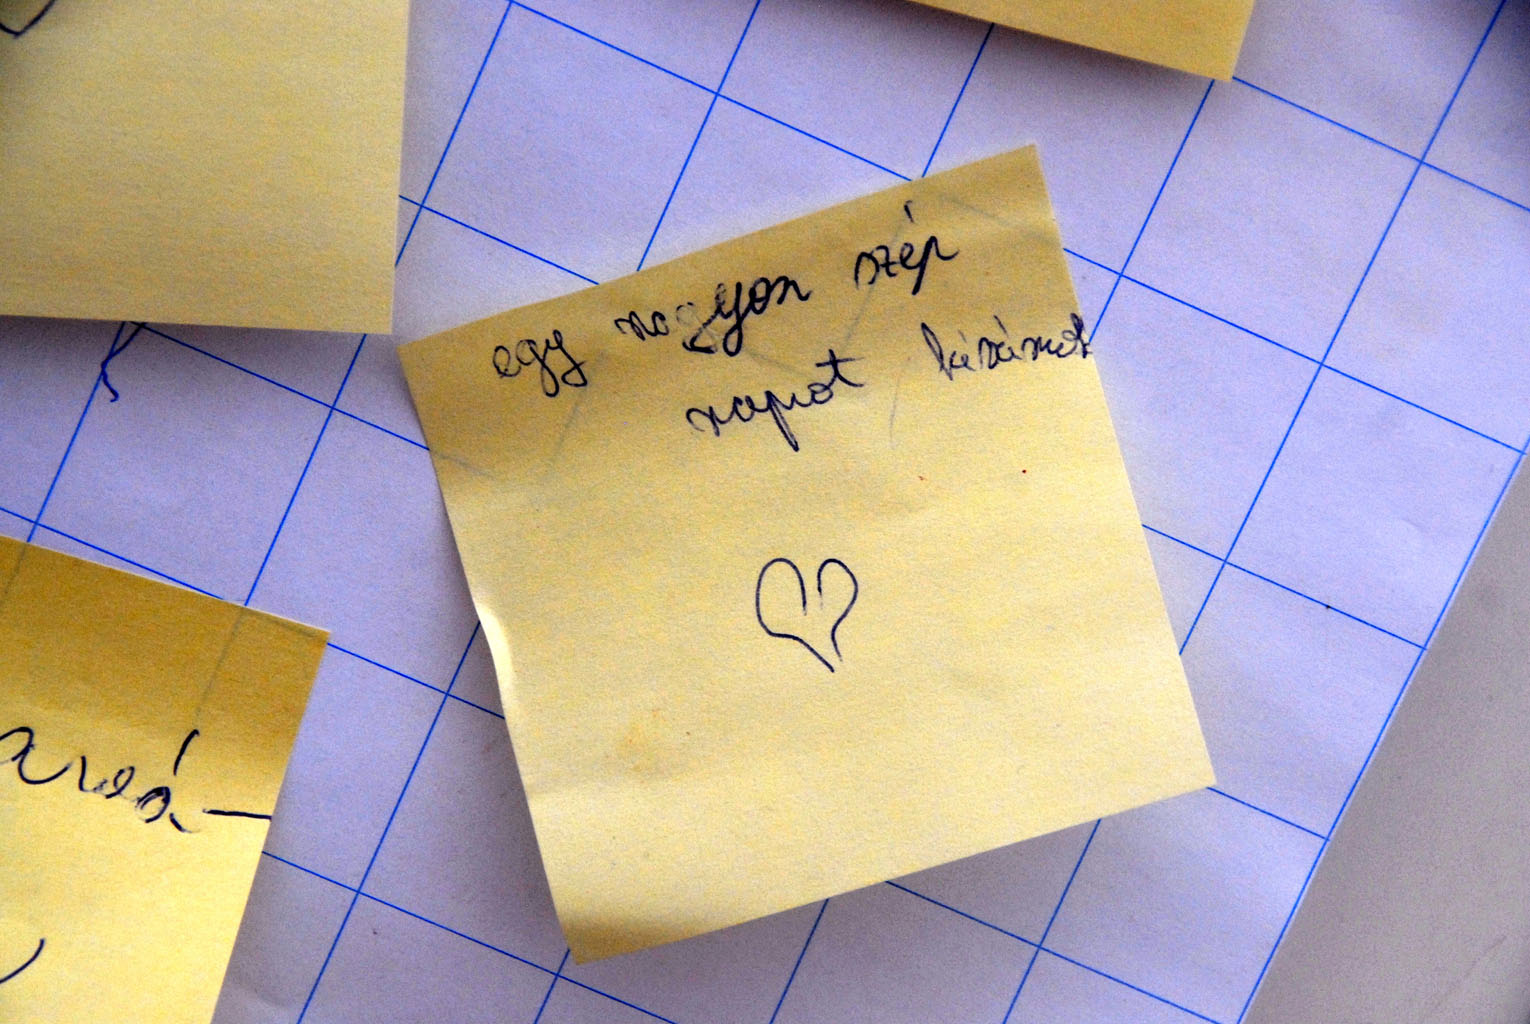 egy nagyon szép
napot kívánok